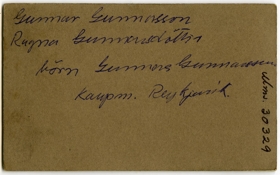 Gunnar Gunnarsson
Ragna Gunnarsdóttir
börn Gunnars Gunnarssonar
kaupm. Reykjavík.
Mms. 30329